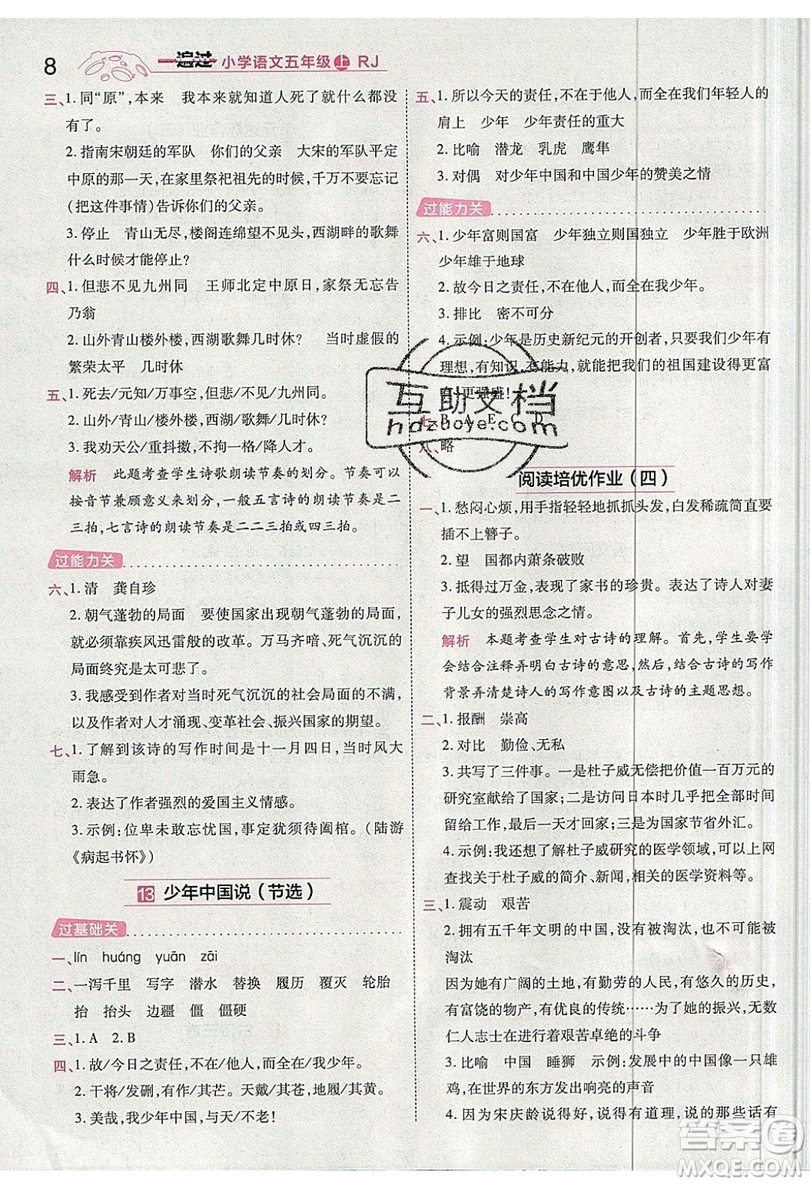 8
一遍过 小学语文五年级上 RJ
三、1. 同“原”，本来　我本来就知道人死了就什么都没
有了。
2. 指南宋朝廷的军队　你们的父亲　大宋军队平定
中原的那一天，在家里祭祀祖先的时候，千万不要忘记
（把这件事情）告诉你们的父亲。
3. 停止　青山无尽，楼阁连绵望不见头，西湖畔的歌舞
什么时候才能停止？
四、1. 但悲不见九州同　王师北定中原日，家祭无忘告
乃翁
2. 山外青山楼外楼，西湖歌舞几时休？　当时虚假的
繁荣太平　讽刺
五、1. 死去/元知/万事空，但悲/不见/九州同。
2. 山外/青山/楼外楼，西湖/歌舞/几时休？
3. 我劝天公/重抖擞，不拘一格/降人才。
解析　此题考查学生诗歌朗读节奏的划分，可以
按音节兼意义来划分。一般五言诗的朗读节奏是二
三拍，七言诗的朗读节奏是二二三拍或四三拍。
过能力关
六、1. 清　龚自珍
2. 朝气蓬勃的局面　要使国家出现朝气蓬勃的局面，
就必须靠疾风迅雷般的改革。万马齐喑、死气沉沉的
局面终究是一种悲哀。
3. 我感受到作者对当时死气沉沉的社会局面的不满，
以及作者对人才涌现、变革社会、振兴国家的期望。
七、1. 了解到该诗的写作时间是十一月四日，当时风大
雨急。
2. 表达了作者强烈的爱国主义情感。
3. 示例：位卑未敢忘忧国，事定犹须待阖棺。（陆游
《病起书怀》）
13 少年中国说（节选）
过基础关
一、lín　huáng　yuān　zāi
二、一泻千里　写字　潜水　替换　履历　覆灭　轮胎
抬　抬头　边疆　僵　僵硬
三、1. A　2. B
四、1. 故/今日之责任，不在他人，而全在我少年。
2. 干将/发硎，有作其芒。天戴/其苍，地履/其黄。
3. 美哉，我少年中国，与天/不老！
五、1. 所以今天的责任，不在于他人，而全在我们年轻人的
肩上　少年　少年责任的重大
2. 比喻　潜龙　乳虎　鹰隼
3. 对偶　对少年中国和中国少年的赞美之情
过能力关
六、1. 少年富则国富　少年独立则国独立　少年胜于欧洲
少年雄于地球
2. 故今日之责任，不在他人，而全在我少年。
3. 排比　密不可分
4. 示例：少年是历史新纪元的开创者，只要我们少年有
理想，有知识，有能力，就一定能将我们的祖国建设得更富
有，更强盛！
七、B　A　E　C　D
八、略
阅读培优作业（四）
一、1. 愁闷心烦，用手指轻轻地抓抓头发，白发稀疏简直要
插不上簪子。
2. 望　国都内萧条破败
3. 抵得过万金，形象地表现了家书的珍贵。表达了诗人对妻
子儿女的强烈思念之情。
解析　本题考查学生对古诗的理解。首先，学生要学
会结合注释弄明白古诗的意思，然后，结合古诗的写作
背景弄清楚诗人的写作意图以及古诗的主题思想。
二、1. 报酬　崇高
2. 对比　勤俭、无私
3. 共写了三件事。一是杜子威无偿把价值一百万元的
研究室献给了国家；二是访问日本时几乎把全部时间
留给工作，最后一天才回家；三是为国家节省外汇。
4. 示例：我想了解关于杜子威研究的医学领域，我想知
道他在医学界取得了哪些成绩。
三、1. 震动　艰苦
2. 拥有五千年文明的中国，没有被淘汰，也决不会被
淘汰
因为她有广阔的土地，有勤劳的人民，有悠久的历史，
有富饶的物产，有优良的传统……为了她的振兴，无数
仁人志士在进行着艰苦卓绝的斗争
3. 比喻　中国　睡狮　示例：发展中的中国像一只雄
鸡，在世界的东方发出响亮的声音
4. 我觉得宋庆龄说得好，说得有道理，说的那些话富有
互助文档
hdzuoye.com
答案圈
MXQE.COM